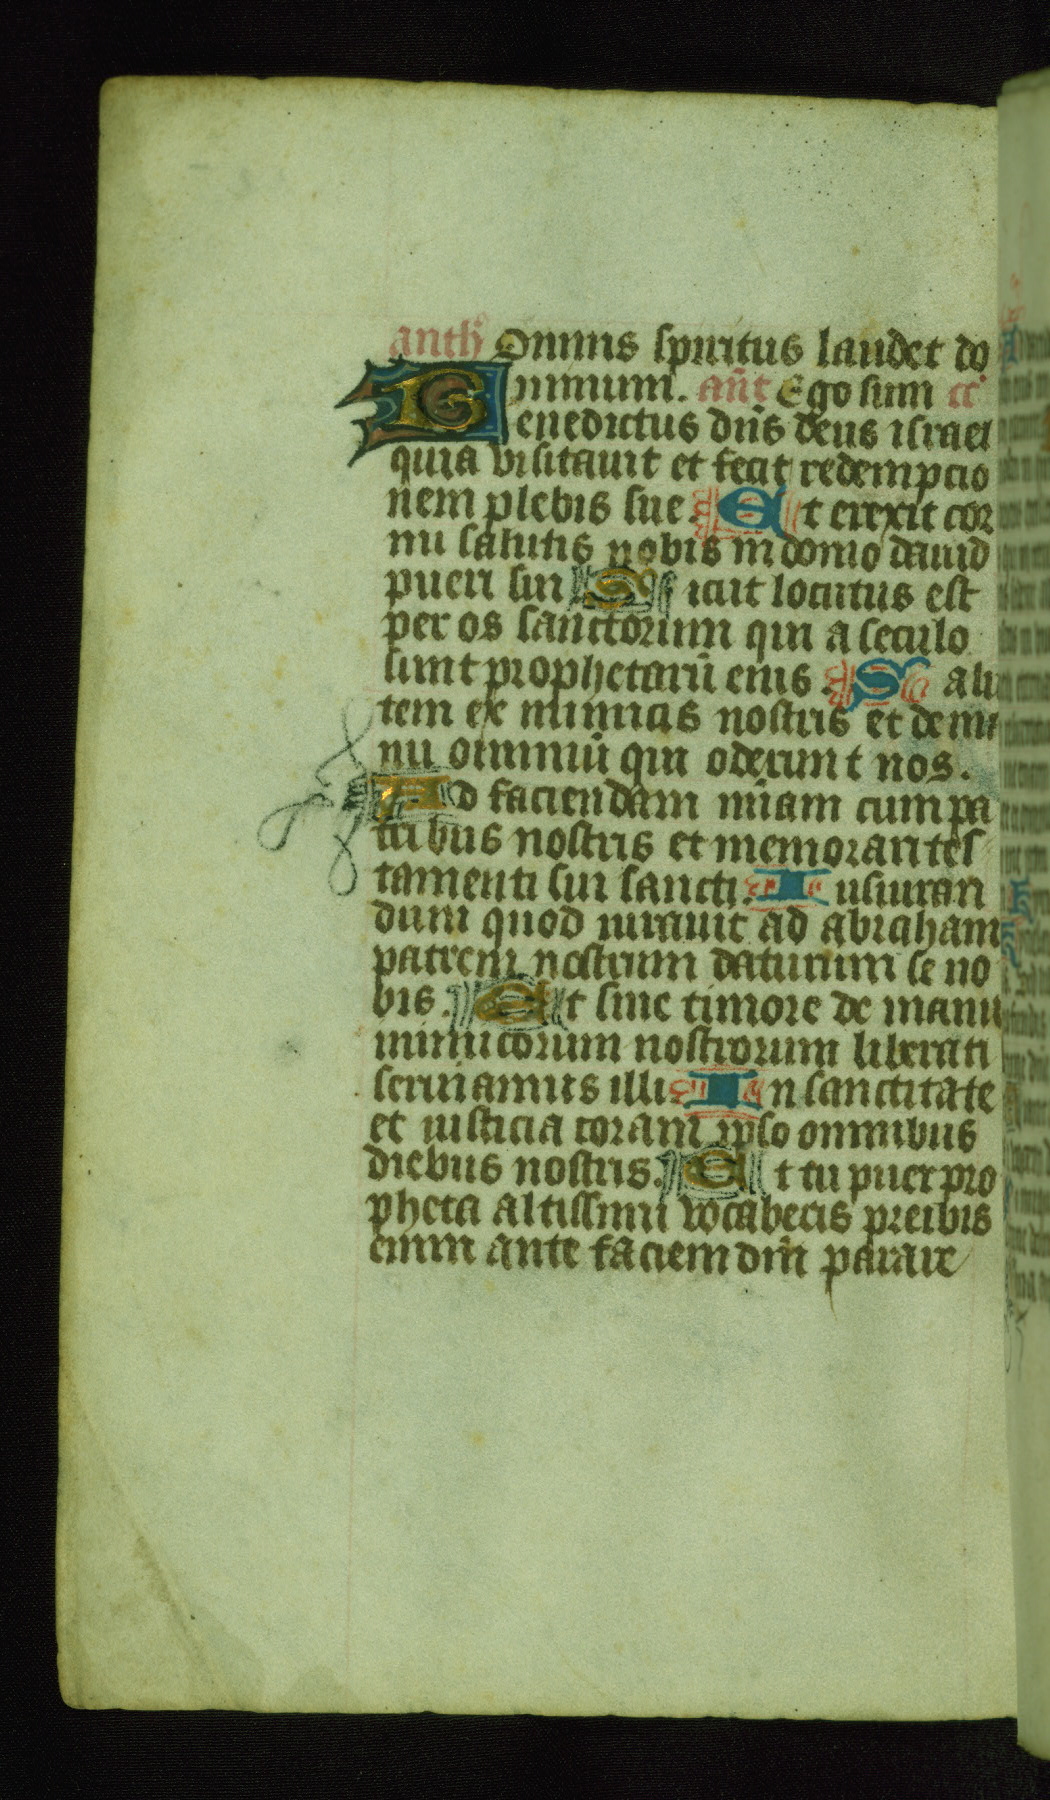 anth' Omnis spiritus laudet do
minum. añt Ego sum cc'
Benedictus dñs deus israel
quia visitavit et fecit redempcio
nem plebis sue. Et erexit cor
nu salutis nobis in domo david
pueri sui Sicut locutus est
per os sanctorum qui a seculo
sunt prophetarū eius. Salu
tem ex inimicis nostris et de ma
nu omniū qui oderunt nos.
Ad faciendam miam cum pa
tribus nostris et memorari tes
tamenti sui sancti. Iusiuran
dum quod iuravit ad abraham
patrem nostrum daturum se no
bis. Et sine timore de manu
inimicorum nostrorum liberati
serviamus illi In sanctitate
et iusticia coram ipso omnibus
diebus nostris. Et tu puer pro
pheta altissimi vocaberis preibis
enim ante faciem dñi parare